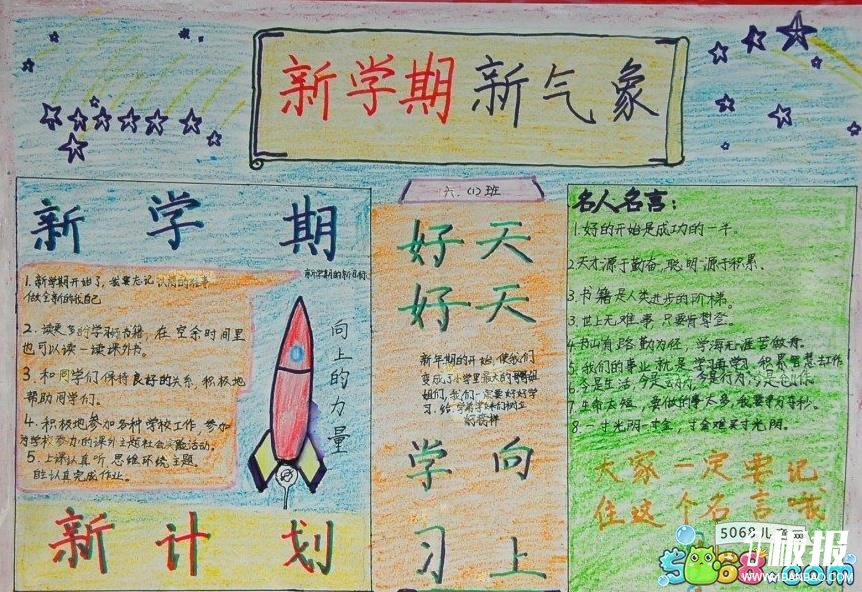 新学期新气象
新 学 期
新学期的新目标
1.新学期开始了,我要忘记以前的往事
做全新的我自己
2.读更多的学习书籍,在空余时间里
也可以读一读课外书。
3.和同学们保持良好的关系,积极地
帮助同学们。
4.积极地参加各种学校工作,参加
学校举办的课外主题社会实践活动。
5.上课认真听,思维环绕主题。
认真完成作业。
向上的力量
新 计 划
六.(1)班
好 天
好 天
新年期的开始,使我们
变成了小学里最大的哥哥姐
姐们,我们一定要好好学
习.给学弟学妹们树立
的榜样
学 向
习 上
名人名言:
1.好的开始是成功的一半。
2.天才源于勤奋,聪明源于积累.
3.书籍是人类进步的阶梯。
3.世上无难事,只要肯登登。
4.书山有路勤为径,学海无涯苦做舟。
5.我们的事业就是学习再学习,积累智慧去工作
7.生命太短,要做的事太多,我要争分夺秒。
8.一寸光阴一寸金,寸金难买寸光阴。
大家一定要记
住这个名言哦
5068儿
板报
5068.com
WWW.1BANBAO.COM